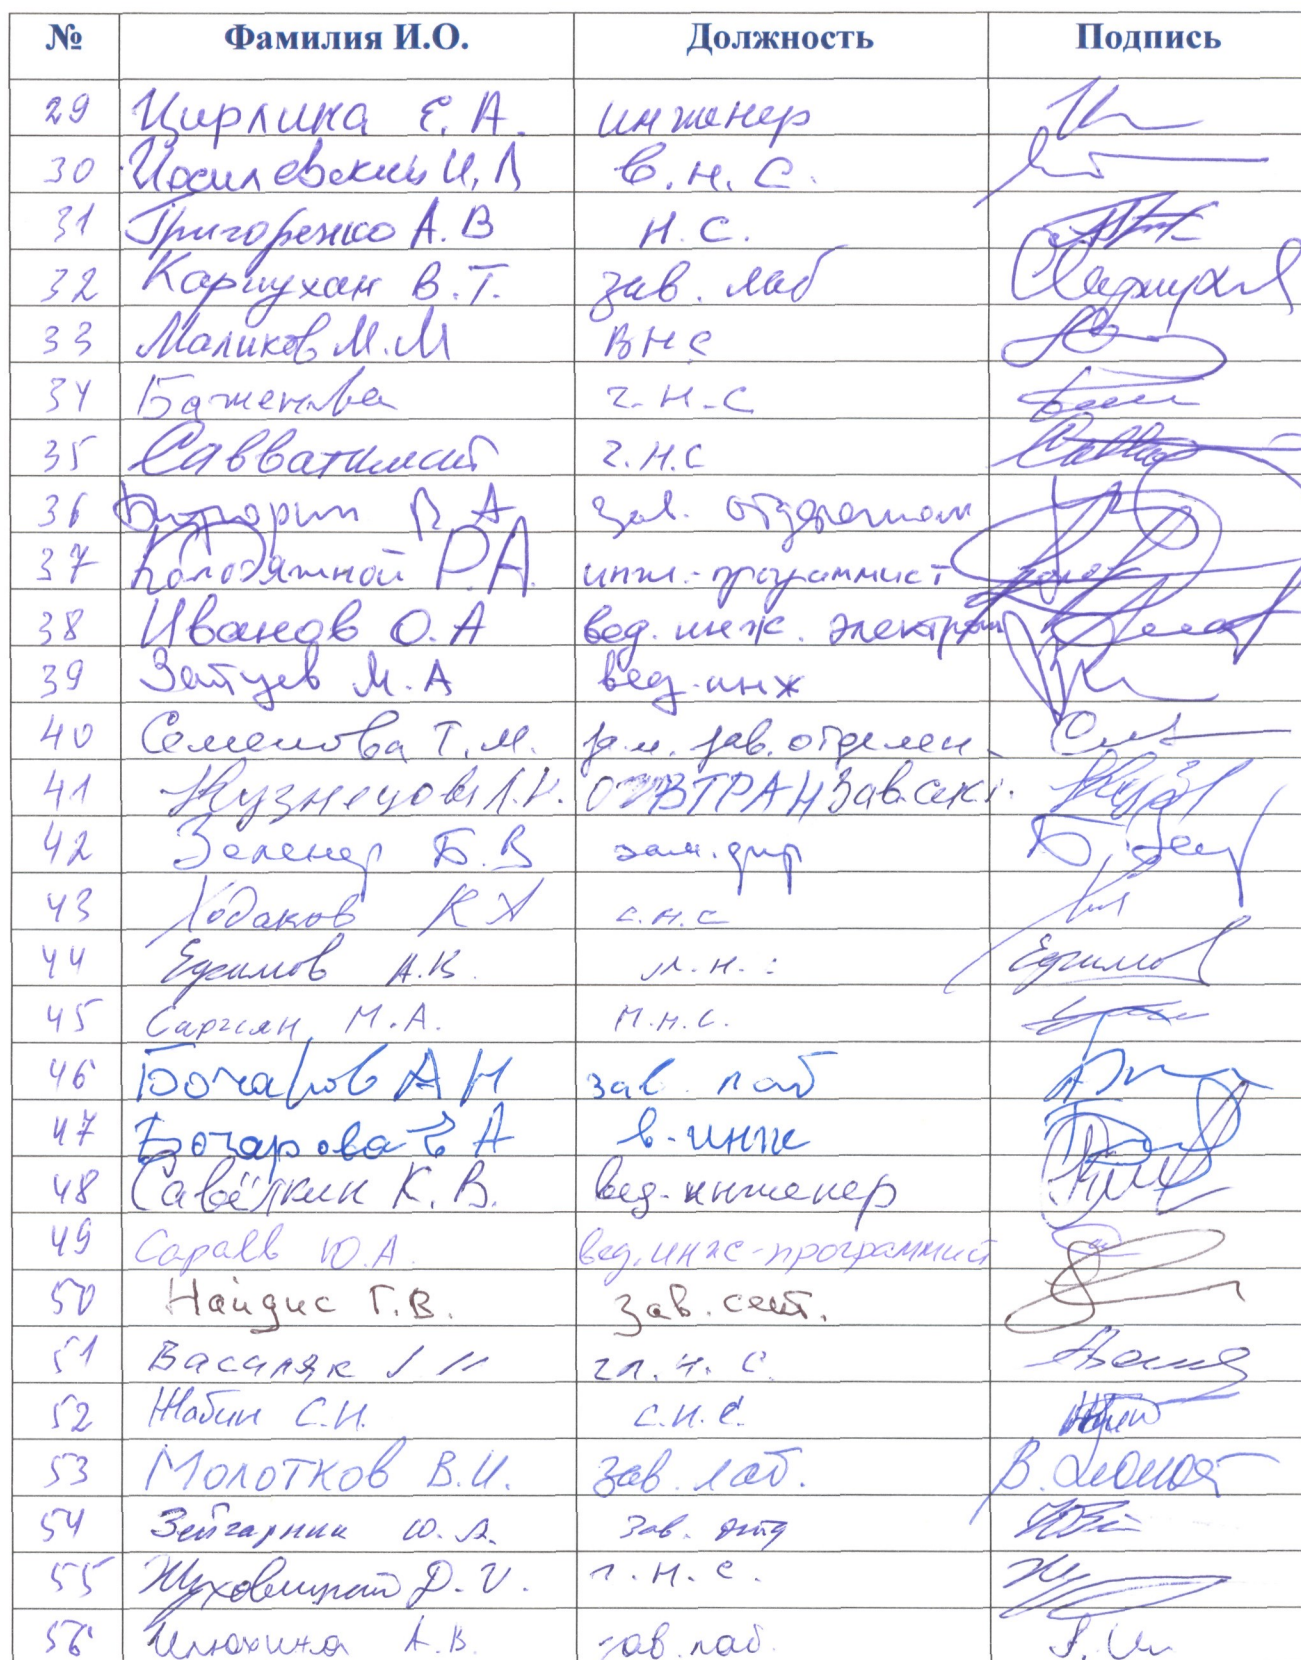 № Фамилия И.О. Должность Подпись
29 Цирлина Е.А. инженер
30 Иосилевский И.Л в.н.с.
31 Григоренко А.В н.с.
32 Каршухан В.Т. зав. лаб
33 Маликов М.М внс
34 Баженова г.н.с
35 Савватимский г.н.с
36 зав. отделением
37 Колодяжной Р.А. инж.-программист
38 Иванов О.А вед. инж. электрон
39 Зайцев М.А вед.инж
40 Семенова Т.М. зам. зав. отделен.
41 Кузнецова ОИВТРАН Зав.сект.
42 Зеленер Б.В зам.дир
43 Ходаков К А с.н.с
44 Ефимов А.В. м.н. Ефимов
45 Саргсян М.А. м.н.с.
46 Бочаров А Н зав. лаб
47 Бочарова Е А в-инж
48 Савёлкин К.В. вед-инженер
49 Сараев Ю.А. вед.инж-программист
50 Найдис Г.В. Зав. сект.
51 Василяк гл.н.с
52 Жабин С.Н. с.н.с.
53 Молотков В.И. зав. лаб. В. Молот
54 Зейгарник Ю.А. зав. отд
55 Жуховицкий Д.И. г.н.с.
56 Илюхина А.В. зав.лаб.